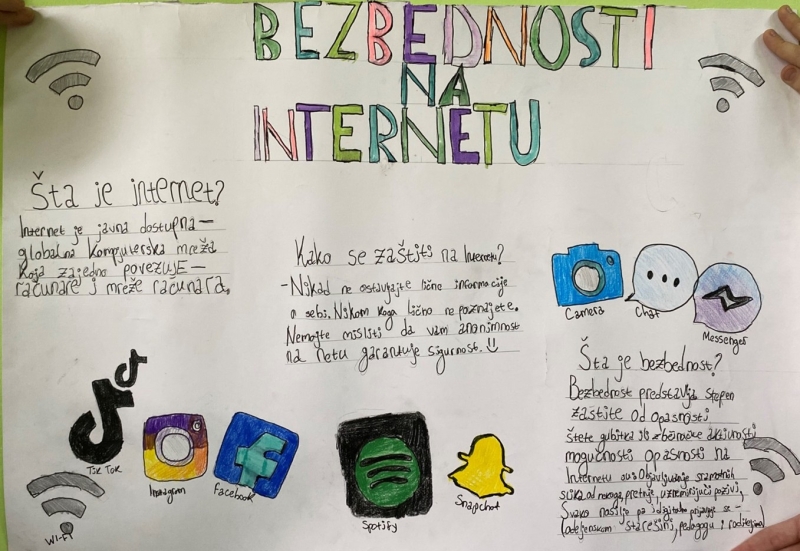 BEZBEDNOSTI
NA
INTERNETU
Šta je internet?
Internet je javna dostupna-
globalna kompjuterska mreža
koja zajedno povezuje-
računare i mreže računara.
Kako se zaštiti na Internetu?
-Nikad ne ostavljajte lične informacije
o sebi. Nikom koga lično ne poznajete.
Nemojte misliti da vam anonimnost
na netu garantuje sigurnost.
Camera
Chat
Messenger
Šta je bezbednost?
Bezbednost predstavlja stepen
zaštite od opasnosti
štete gubitka
mogućnosti opasnosti na
Internetu su: Objavljivanje sramotnih
slika od nekoga, pretnje, uznemirujući pozivi,
Svako nasilje
starešini, pedagogu i roditeljima
Tik Tok
Instagram
Facebook
Spotify
Snapchat
Wi-Fi